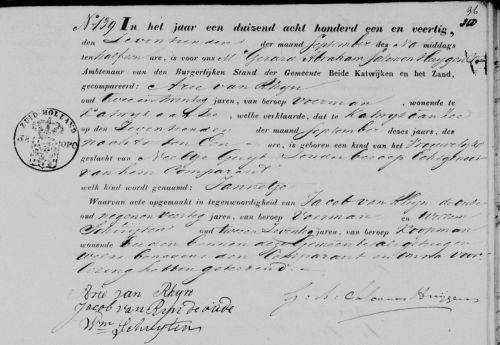 96
No 139 In het jaar een duizend acht honderd een en veertig,
den Zeventienden der maand September des Na middags
ten half een ure, is voor ons Mr Gerard Abraham
Ambtenaar van den Burgerlijken Stand der Gemeente Beide Katwijken en het Zand,
gecompareerd: Arie van Rhijn
oud twee en twintig jaren, van beroep Voerman, wonende te
Katwijk aan Zee, welke verklaarde, dat te Katwijk aan Zee
op den Zeventienden der maand September deses jaars, des
nachts ten Een ure, is geboren een kind van het Vrouwelijke
geslacht van Neeltje zonder beroep Echtgenoot
van hem Comparant
welk kind wordt genaamd: Jannetje
Waarvan acte opgemaakt in tegenwoordigheid van Jacob van Rhijn de oude
oud negen en veertig jaren, van beroep Voerman en Willem
Schuijten oud twee en zeventig jaren, van beroep Koopman
wonende beiden binnen deze Gemeente als getuigen
welke benevens den Comparant en ons na voor
lezing hebben geteekend.
Arie van Rhijn
Jacob van Rijn de oude
Wm Schuyten
ZUID HOLLAND